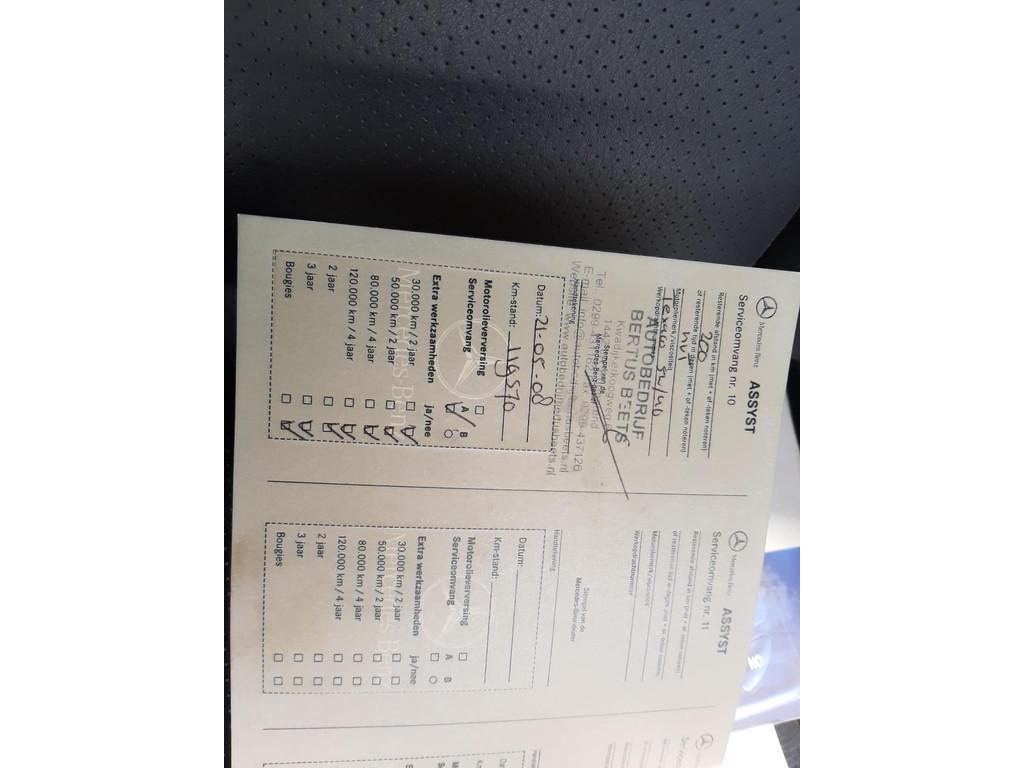 Mercedes-Benz
ASSYST
Serviceomvang nr. 10
Resterende afstand in km (met + of -teken noteren)
200
of resterende tijd in dagen (met + of -teken noteren)
nvt
Motoroliemerk / viscositeit
Texaco 5w/40
AUTOBEDRIJF
BERTUS BEETS
Stempel van de
Mercedes-Benz dealer
Handtekening
Datum: 21-05-08
Km-stand:
Motorolieverversing
Serviceomvang A B
Extra werkzaamheden ja/nee
30.000 km / 2 jaar
50.000 km / 2 jaar
80.000 km / 4 jaar
120.000 km / 4 jaar
2 jaar
3 jaar
Bougies
Mercedes-Benz
Mercedes-Benz
ASSYST
Serviceomvang nr. 11
Resterende afstand in km (met + of -teken noteren)
of resterende tijd in dagen (met + of -teken noteren)
Motoroliemerk / viscositeit
Werkopdrachtnummer
Stempel van de
Mercedes-Benz dealer
Handtekening
Datum:
Km-stand:
Motorolieverversing
Serviceomvang A B
Extra werkzaamheden ja/nee
30.000 km / 2 jaar
50.000 km / 2 jaar
80.000 km / 4 jaar
120.000 km / 4 jaar
2 jaar
3 jaar
Bougies
Mercedes-Benz